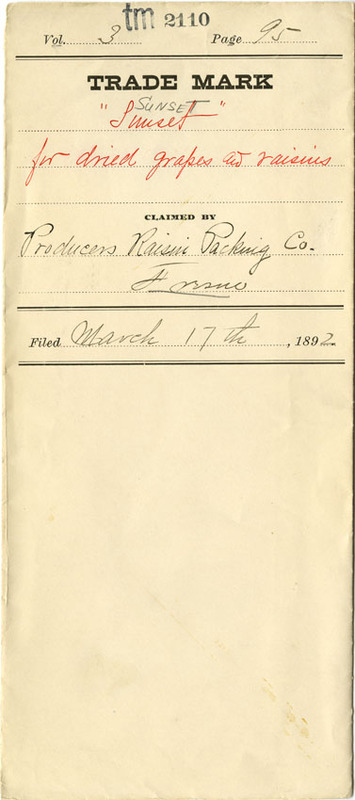 tm 2110
Vol. 3 Page 95
TRADE MARK
SUNSET
"Sunset"
for dried grapes and raisins
CLAIMED BY
Producers Raisin Packing Co.
Fresno
Filed March 17th, 1892